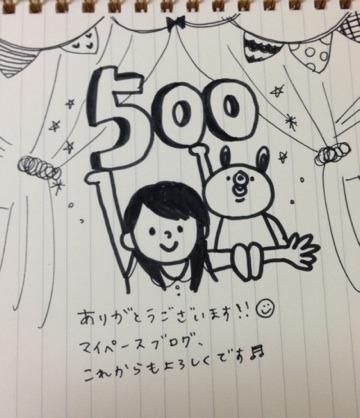 500
ありがとうございます!!
マイペースブログ、
これからもよろしくです♬